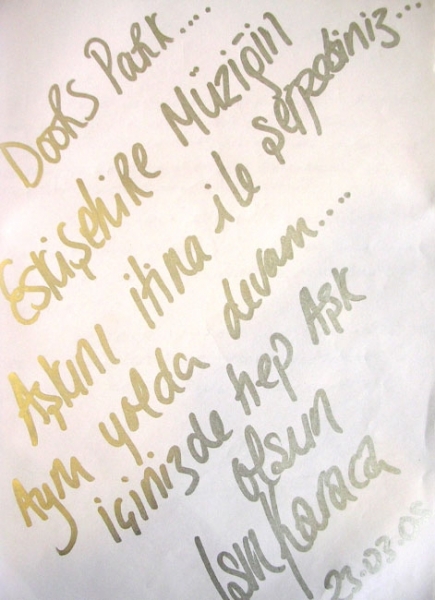 Doors Park....
Eskişehire Müziğin
Aşkını itina ile serpesiniz...
Aynı yolda devam....
içinizde hep Aşk
olsun
Işın Karaca
23.03.05